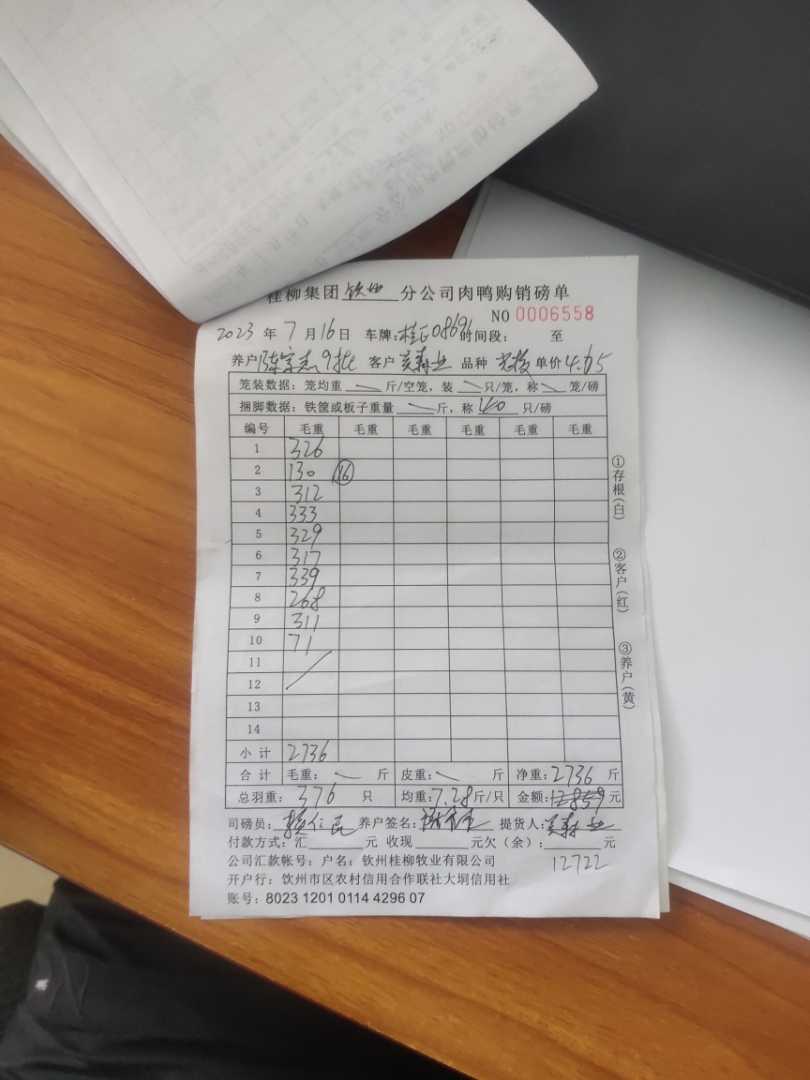 桂柳集团钦州分公司肉鸭购销磅单
NO 0006558
2023 年 7 月 16 日 车牌: 时间段: 至
养户 9批 客户 品种 单价 4.65
笼装数据: 笼均重 斤/空笼, 装 只/笼, 称 笼/磅
捆脚数据: 铁筐或板子重量 斤, 称 40 只/磅
编号 毛重 毛重 毛重 毛重 毛重 毛重
1 326
2 130 16
3 312
4 333
5 329
6 317
7 339
8 268
9 311
10 71
11
12
13
14
小计 2736
合计 毛重: 斤 皮重: 斤 净重: 2736 斤
总羽重: 376 只 均重: 7.28 斤/只 金额: 元
司磅员: 养户签名: 提货人:
付款方式: 汇 元 收现 元欠(余): 元
12722
公司汇款帐号: 户名: 钦州桂柳牧业有限公司
开户行: 钦州市区农村信用合作联社大垌信用社
账号: 8023 1201 0114 4296 07
①存根(白)
②客户(红)
③养户(黄)